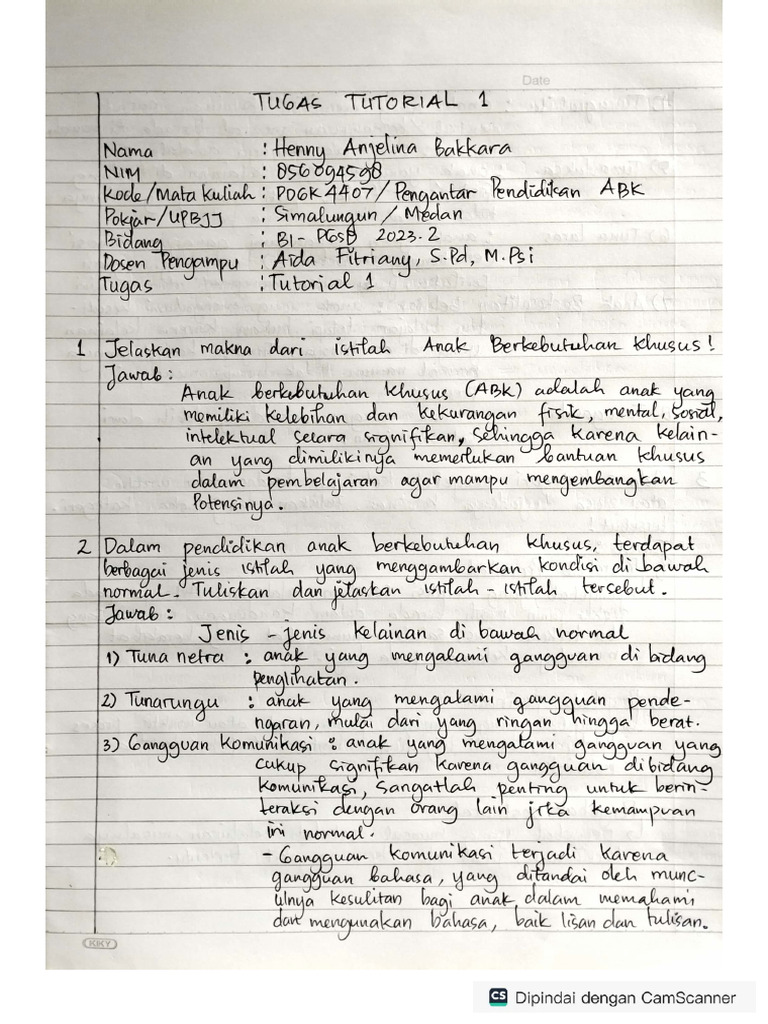 Date
TUGAS TUTORIAL 1
Nama : Henny Anjelina Bakkara
NIM : 856094598
Kode/Mata kuliah : PDGK 4407/Pengantar Pendidikan ABK
Pokjar/UPBJJ : Simalungun / Medan
Bidang : BI - PGSD 2023.2
Dosen Pengampu : Aida Fitriany, S.Pd, M.Psi
Tugas : Tutorial 1
1 Jelaskan makna dari istilah Anak Berkebutuhan Khusus!
Jawab :
Anak berkebutuhan khusus (ABK) adalah anak yang
memiliki kelebihan dan kekurangan fisik, mental, sosial,
intelektual secara signifikan, sehingga karena kelain-
an yang dimilikinya memerlukan bantuan khusus
dalam pembelajaran agar mampu mengembangkan
potensinya.
2 Dalam pendidikan anak berkebutuhan khusus, terdapat
berbagai jenis istilah yang menggambarkan kondisi di bawah
normal. Tuliskan dan jelaskan istilah - istilah tersebut.
Jawab :
Jenis - jenis kelainan di bawah normal
1) Tuna netra : anak yang mengalami gangguan di bidang
penglihatan.
2) Tunarungu : anak yang mengalami gangguan pende-
ngaran, mulai dari yang ringan hingga berat.
3) Gangguan komunikasi : anak yang mengalami gangguan yang
cukup signifikan karena gangguan dibidang
komunikasi, sangatlah penting untuk berin-
teraksi dengan orang lain jika kemampuan
ini normal.
- Gangguan komunikasi terjadi karena
gangguan bahasa, yang ditandai oleh munc-
ulnya kesulitan bagi anak dalam memahami
dan mengunakan bahasa, baik lisan dan tulisan.
KIKY
CS Dipindai dengan CamScanner